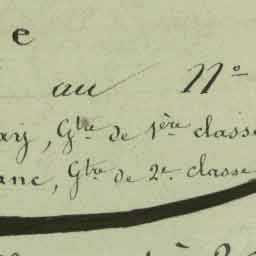 e
au Nº
arj, Gtre de 1ère classe
anc, Gtre de 2e classe